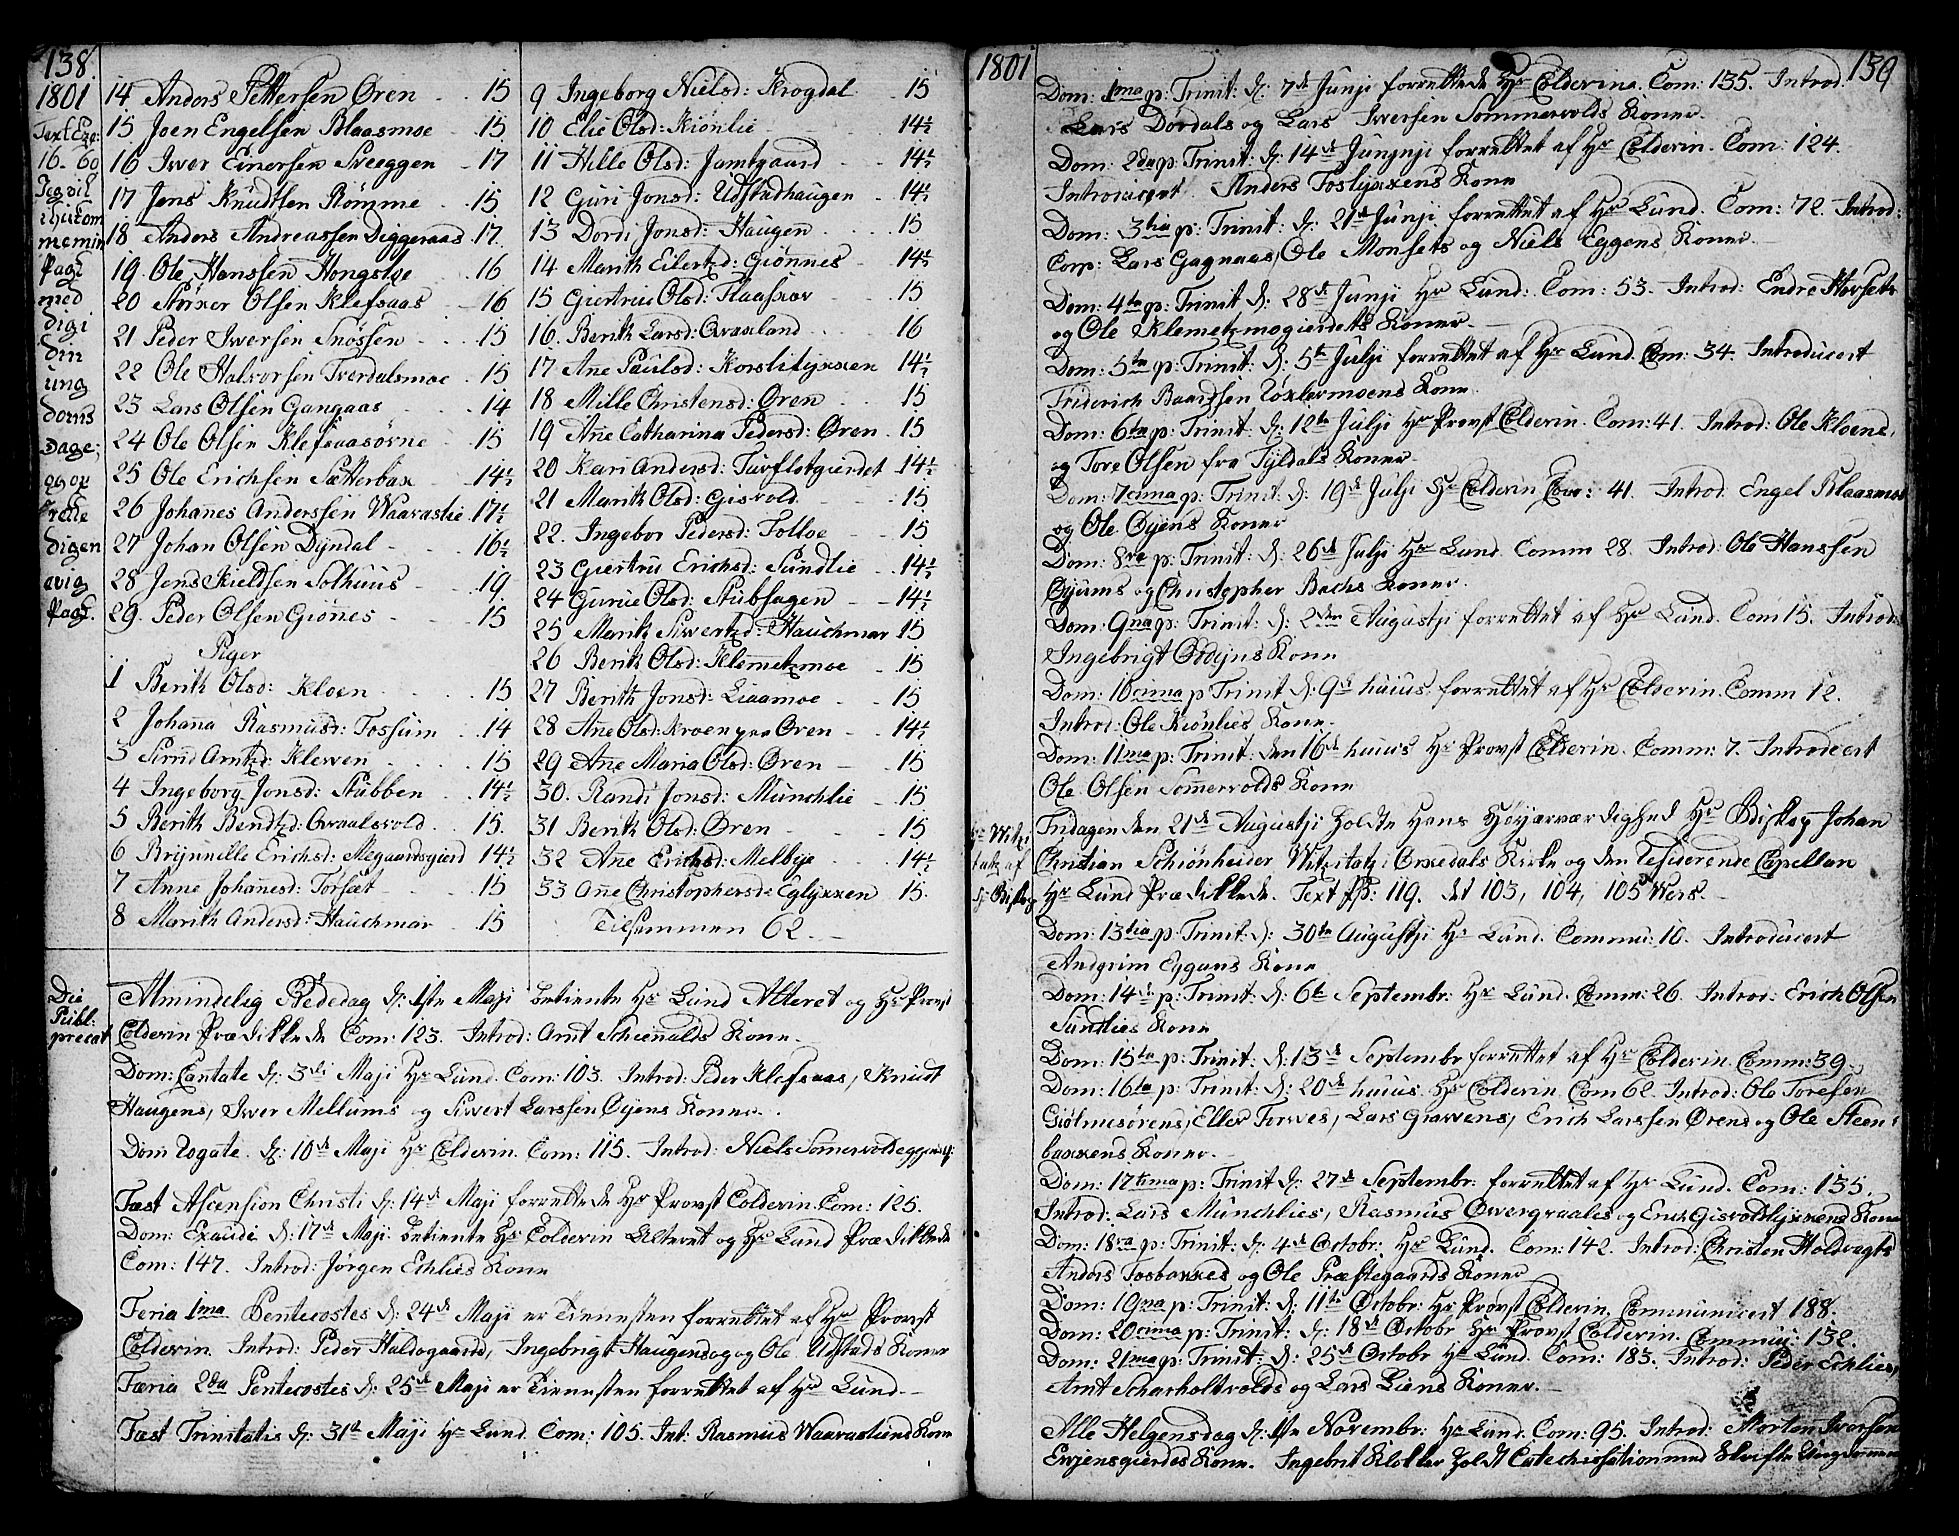 138.
1801
Text Eze:
16. 60
Jeg vil
ihukom
memin
Pagt
med
dig i
din
ung
doms
Dage;
og op
rette
dig en
evig
Pagt.
14 Anders Pettersen Øren 15
15 Joen Engelsen Blaasmoe 15
16 Iwer Einersen Sveeggen 17
17 Jens Knudtsen Rømme 15
18 Anders Andreassen Diggeraas 17.
19 Ole Hanssen Hongsloe 16
20 Størker Olsen Klefsaas 16
21 Peder Iwersen Snøssen 15
22 Ole Halvorsen Tverdalsmoe 15
23 Lars Olsen Gangaas 14
24 Ole Olsen Klefsaasørne 15
25 Ole Erichsen Sætterbax 14½
26 Johanes Anderssen Waaraslie 17½
27 Johan Olsen Dyndal 16½
28 Jens Kieldsen Solhuus 19
29. Peder Olsen Giønnes 15
Piger
1 Berith Olsd: Kloen 15
2 Johanna Rasmusd: Fossum 14
3 Sirud Arntzd: Klewen 15
4 Ingeborg Jonsd: Stubben 14½
5 Berith Bendtzd: Gvaalsvold 15.
6 Brynnille Erichsd: Megaardsgierd 14½
7 Anne Johannesd: Torsæt 15
8 Marith Andersd: Hauchmar 15
9 Ingeborg Nielsd: Krogdal 15
10 Elie Olsd: Kiønlie 14½
11 Hille Olsd: Jamtgaard 14½
12 Guri Jonsd: Udstadhaugen 14½
13 Dordi Jonsd: Haugen 15
14 Marith Eilertzd: Giønnes 14½
15 Giertrue Olsd: Flaaskar 15
16. Berith Larsd: Qvaxland 16
17 Ane Paulsd: Korslitlyxxen 14½
18 Mille Christensd: Øren 15
19 Ane Catharina Pedersd: Øren 15
20 Kari Andersd: Turflotgierdet 14½
21 Marith Olsd: Gisvold 15
22. Ingebor Pedersd: Folloe 15
23 Giertru Erichsd: Sundlie 14½
24 Gurue Olsd: Stubhagen 14½
25 Marith Siwertzd: Hauchmar 15
26 Berith Olsd: Klemmetzmoe 15
27 Berith Jonsd: Liaamoe 15
28 Ane Olsd: Kroen paa Øren 14½
29 Ane Maria Olsd: Øren 15
30. Randi Jonsd: Munchlie 15
31 Berith Olsd: Øren 15
32 Ane Erichsd: Melbye 14½
33 Ane Christophersd: Eglyxxen 15.
Tilsammen 62.
Die
Publ:
precat
Almindelig Bededag d: 1ste Maji betiente Hr Lund Alteret og Hr Provst
Colderin Prædikkede Com: 123. Introd: Arnt Schiennalds Kone.
Dom: Cantate d: 3die Maji Hr Lund. Com: 103. Introd: Peder Klefsaas, Knudt
Haugens, Iwer Mellums og Siwert Larssen Øyens Koner.
Dom Rogate. d: 10de Maji Hr Colderin. Com: 115. Introd: Niels Somervoldeggens K:
Fæst Ascension Christi d: 14de Maji forrettede Hr Provst Colderin. Com: 125.
Dom: Exaudi d: 17de Maji betiente Hr Colderin Alteret og Hr Lund Prædikkede
Com: 147. Introd: Jørgen Echlies Kone
Feria 1ma Pentecostes d: 24de Maji er Tienesten forrettet af Hr Provst
Colderin. Introd: Peder Haldogaards, Ingebrigt Haugens og Ole Udstads Koner
Færia 2da Pentecostes d: 25de Maji er Tienesten forrettet af Hr Lund.
Fæst Trinitatis d: 31te Maji Hr Lund Com: 105. Int: Rasmus Waaraslieens Kone
1801
139
Dom: 1ma p: Trinit: d: 7de Junji forrettede Hr Colderin. Com: 135. Introd.
Lars Dørdals og Lars Iwersen Sommervolds Koner.
Dom: 2da p: Trinit: d: 14de Junji forrettet af Hr Colderin. Com: 124.
Introducert Anders Foslyxxens Kone
Dom: 3tia p: Trinit: d: 21de Junji forrettet af Hr Lund. Com: 72. Introd:
Corp: Lars Gagnaas, Ole Monsets og Niels Eggens Koner.
Dom: 4ta p: Trinit d: 28de Junji Hr Lund. Com: 53. Introd: Endre Horsets
og Ole Klemetzmogierdets Koner.
Dom: 5ta p: Trinit: d: 5te Julji forrettet af Hr Lund. Com: 34. Introducert
Friderich Baardsen Voxlermoens Kone
Dom: 6ta p: Trinit: d: 12te Julji Hr Provst Colderin. Com: 41. Introd: Ole Kloens,
og Tore Olsen fra Tyldals Koner.
Dom: 7cima p: Trinit: d: 19de Julji Hr Colderin Com: 41. Introd. Engel Blaasmos
og Ole Øyens Koner
Dom: 8va p: Trinit: d: 26de Julji Hr Lund. Comm 28. Introd: Ole Hanssen
Øyums og Christopher Bachs Koner.
Dom: 9na p: Trinit: d: 2den Augustji forrettet af Hr Lund. Com 15. Introd:
Ingebrigt Oddyns Kone
Dom: 10cima p Trinit d: 9de huius forrettet af Hr Colderin. Comm 12.
Introd: Ole Kiønlies Kone.
Dom: 11ma p: Trinit: den 16de huius Hr Provst Colderin. Comm: 7. Introducert
Ole Olsen Somervolds Kone
Hr Witzi-
tatz af
Hr Bisko
Fredagen den 21de Augustji holdte Hans Høyærværdighed Hr Biskop Johan
Christian Schiønheider Witzitatz i Orkedals Kirke og den Residerende Capellan
Hr Lund Prædikkede. Text Ps: 119. det 103, 104, 105 Vers.
Dom: 13tia p: Trinit: d: 30te Augustji Hr Lund. Commu: 10. Introducert
Andgrim Eggans Kone
Dom: 14de p: Trinit: d: 6te Septembr: Hr Lund. Comm: 26. Introd: Erich Olsen
Sundlies Kone
Dom: 15ta p: Trinit: d: 13de Septembr forrettet af Hr Colderin. Comm: 39.
Dom: 16ta p: Trinit: d: 20de huius. Hr Colderin Com 62. Introd: Ole Toresen
Giølmesørens, Eller Torwes, Lars Grawens, Erich Larssen Ørens og Ole Steen-
baxxens Koner.
Dom: 17tima p: Trinit d: 27de Septembr: forrettet af Hr Lund. Com: 135.
Introd: Lars Munchlies, Rasmus Owergraales og Erich Gisvoldslyxxens Koner
Dom: 18va p: Trinit: d: 4de Octobr: Hr Lund. Com: 142. Introd: Christen Holdvagts
Anders Fosbaxxes og Ole Præstegaards Koner
Dom: 19na p: Trinit: d: 11te Octobr: Hr Provst Colderin. Communicert 188.
Dom: 20cima p: Trinit: d: 18de Octobr Hr Provst Colderin. Commu: 132.
Dom: 21ma p: Trinit: d: 25de Octobr Hr Lund. Com: 183. Introd: Peder Echlies,
Arnt Scharholtvolds og Lars Liens Koner.
Alle Helgensdag d: 1ste Novembr: Hr Lund. Com: 95. Introd: Morten Iversen
Evjensgierdes Kone. Ingebrit Klokker holdt Catechisation med Skrifte Ungdommen